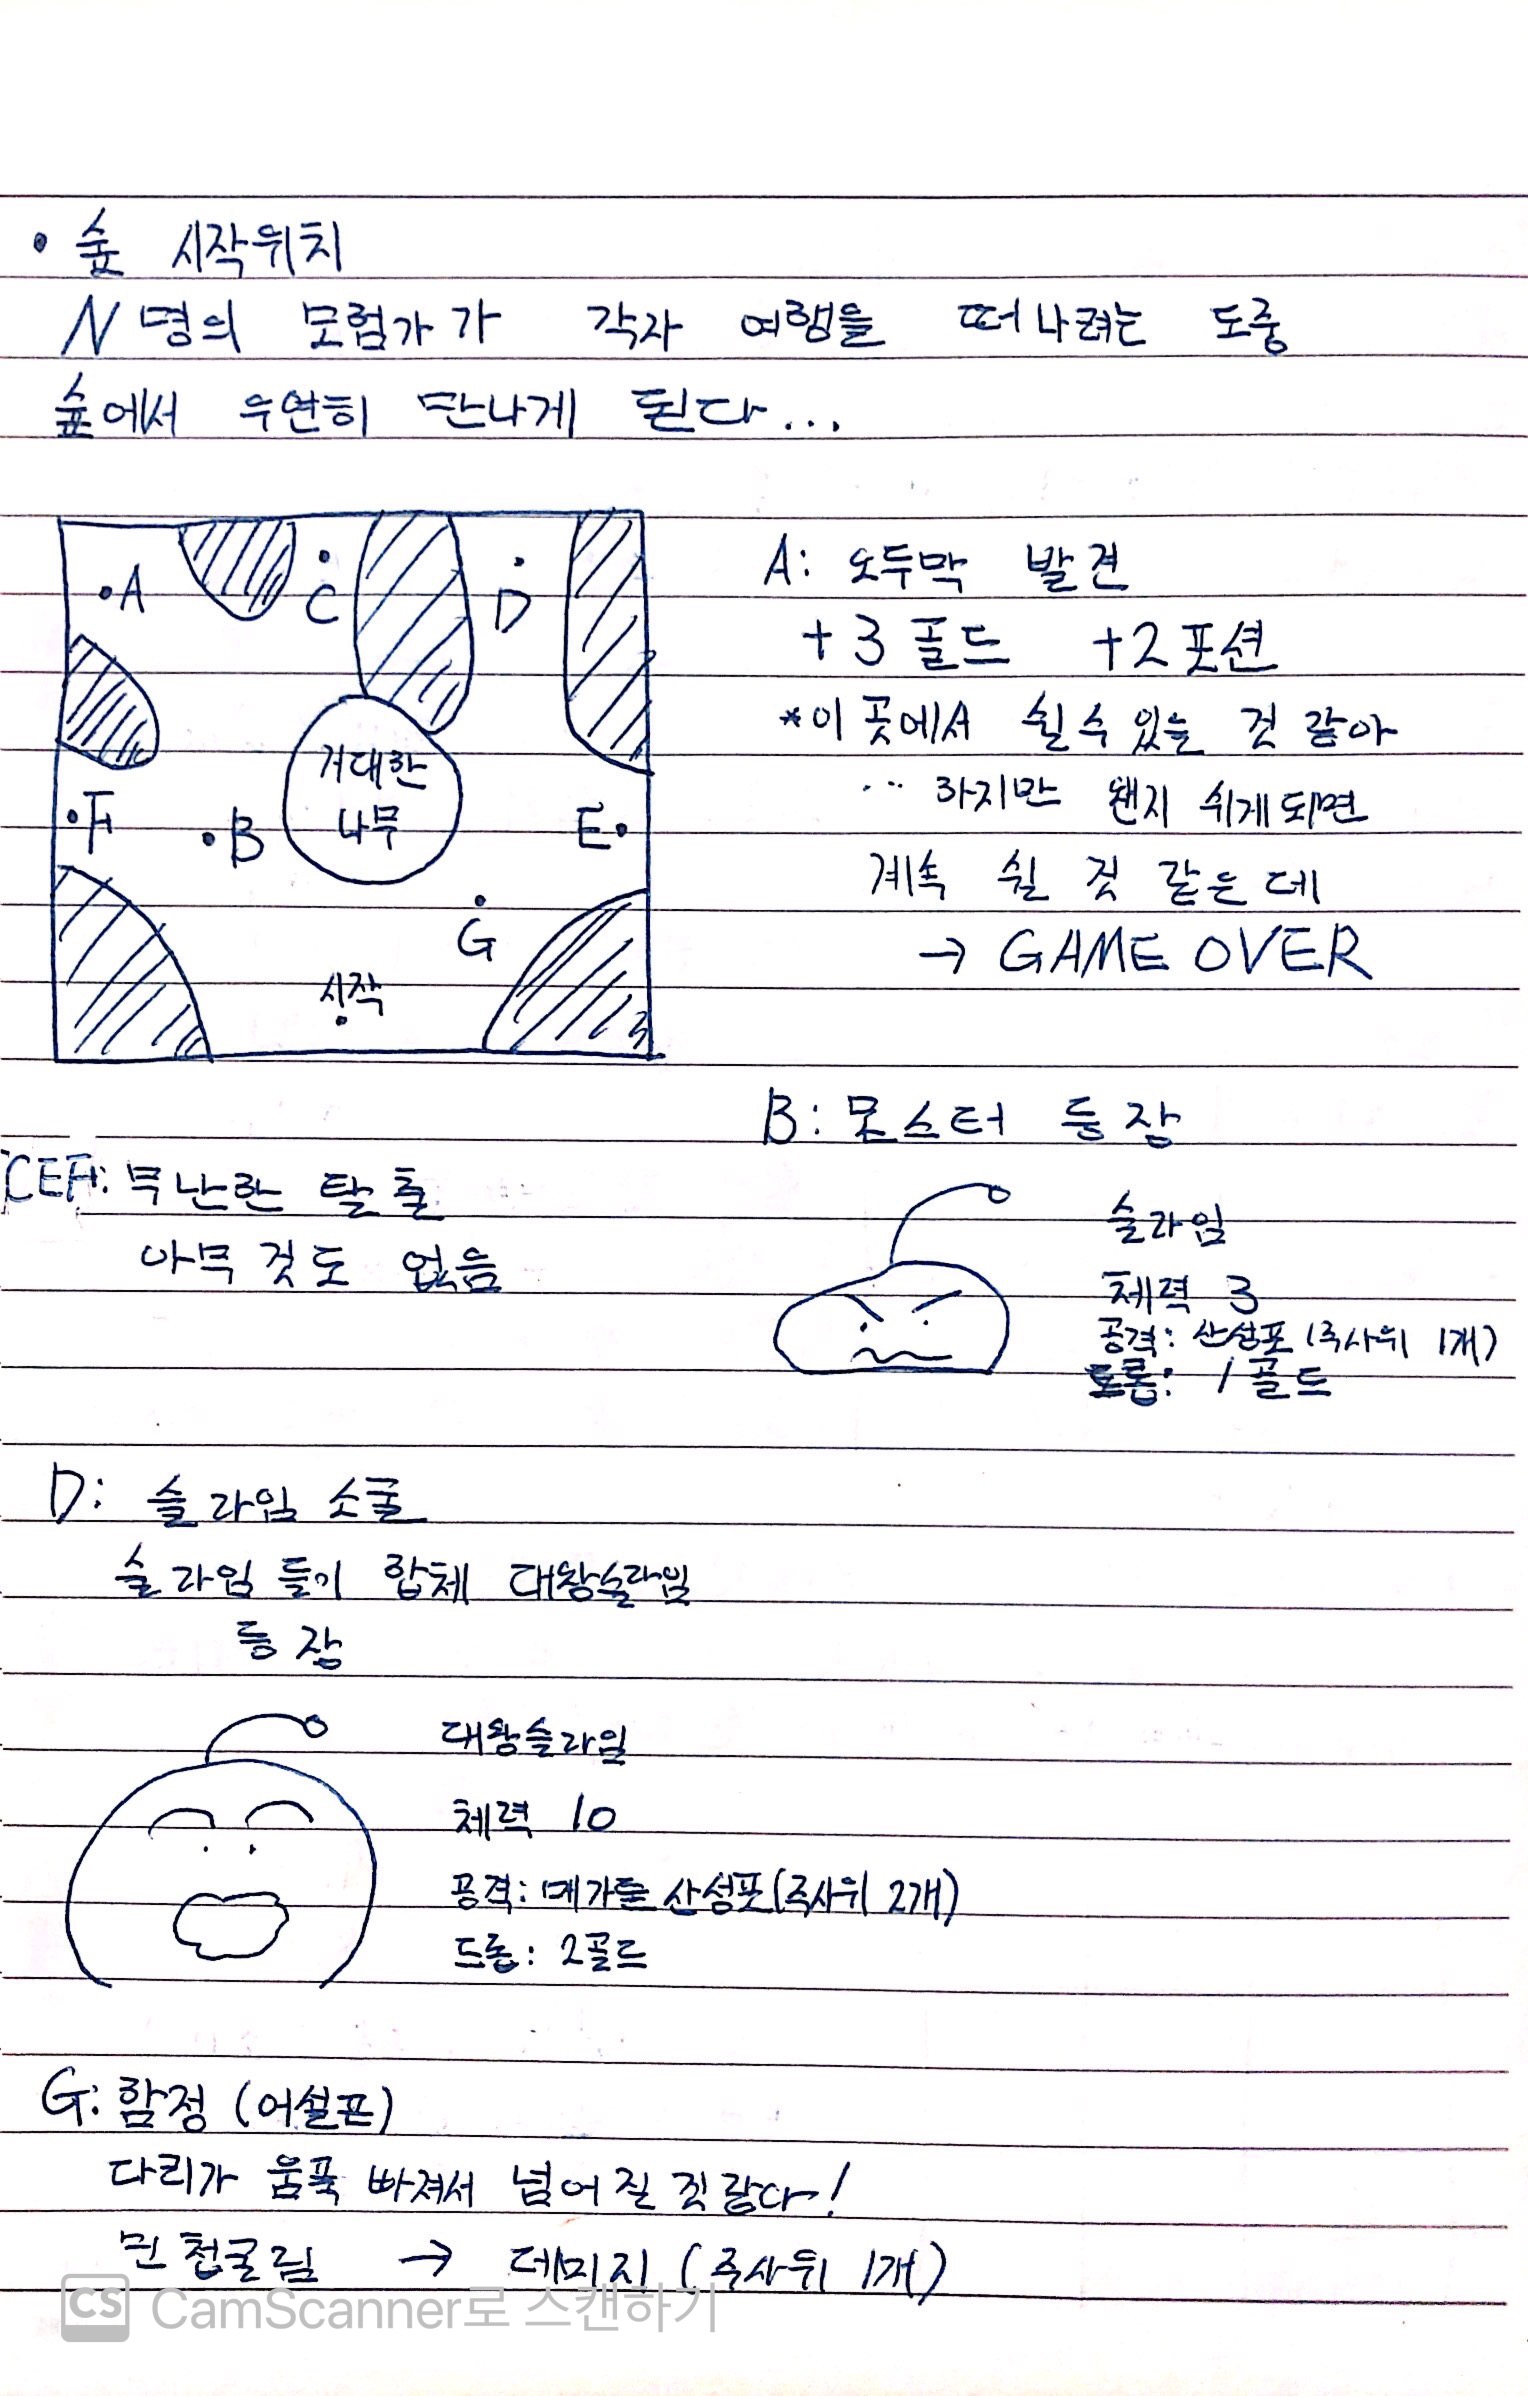 • 숲 시작위치
N명의 모험가가 각자 여행을 떠나려는 도중
숲에서 우연히 만나게 된다...
A
C
D
거대한
나무
F
B
E
G
시작
A: 오두막 발견
+3 골드 +2 포션
*이 곳에서 쉴 수 있을 것 같아
... 하지만 왠지 쉬게 되면
계속 쉴 것 같은데
→ GAME OVER
B: 몬스터 등장
슬라임
체력 3
공격: 산성포 (주사위 1개)
드롭: 1 골드
CEF: 무난한 탈출
아무 것도 없음
D: 슬라임 소굴
슬라임들이 합체 대왕슬라임
등장
대왕슬라임
체력 10
공격: 메가톤 산성포(주사위 2개)
드롭: 2골드
G: 함정 (어설픈)
다리가 움푹 빠져서 넘어질 것 같다!
민첩굴림 → 데미지 (주사위 1개)
CS CamScanner로 스캔하기